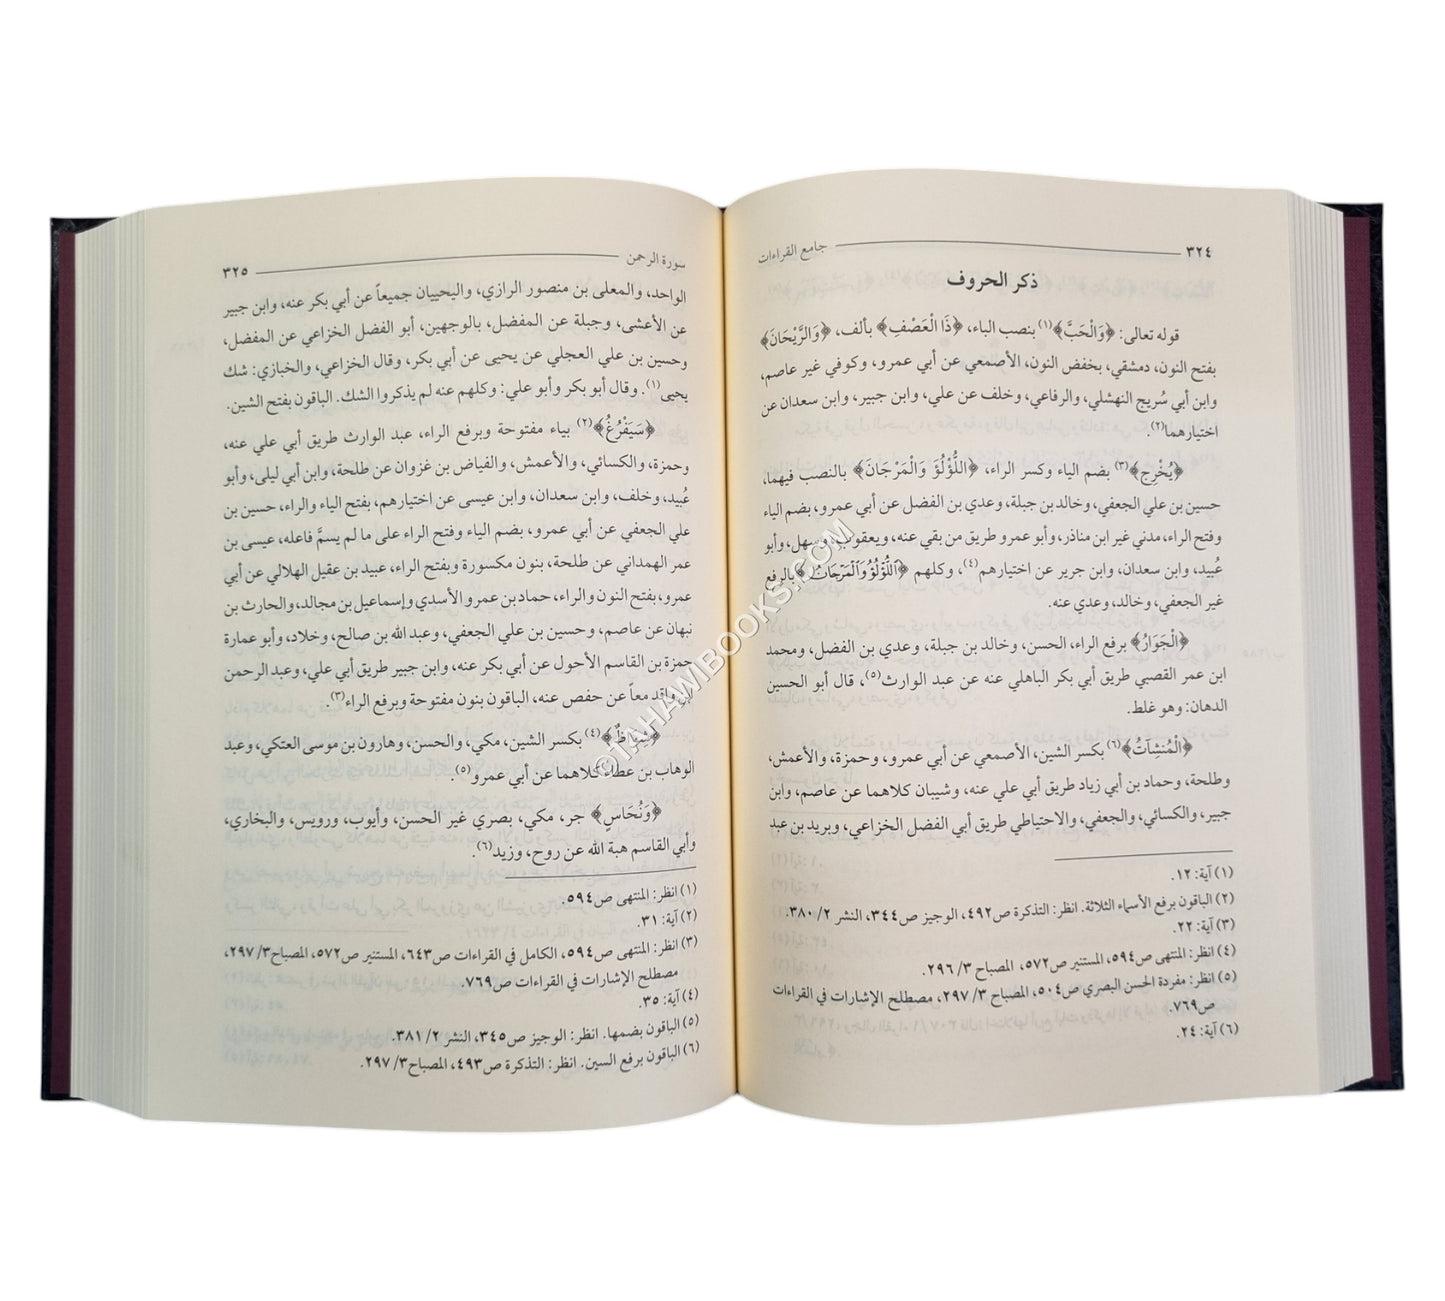 ٣٢٤ جامع القراءات
ذكر الحروف
قوله تعالى: ﴿وَالْحَبَّ﴾(١) بنصب الباء، ﴿ذَا الْعَصْفِ﴾ بألف، ﴿وَالرَّيْحَانَ﴾
بفتح النون، دمشقي، بخفض النون، الأصمعي عن أبي عمرو، وكوفي غير عاصم،
وابن أبي سُريج النهشلي، والرفاعي، وخلف عن علي، وابن جبير، وابن سعدان عن
اختيارهما(٢).
﴿يُخْرِج﴾(٣) بضم الياء وكسر الراء، ﴿اللُّؤْلُؤَ وَالْمَرْجَانَ﴾ بالنصب فيهما،
حسين بن علي الجعفي، وخالد بن جبلة، وعدي بن الفضل عن أبي عمرو، بضم الياء
وفتح الراء، مدني غير ابن مناذر، وأبو عمرو طريق من بقي عنه، ويعقوب، وسهل، وأبو
عُبيد، وابن سعدان، وابن جرير عن اختيارهم(٤)، وكلهم ﴿ٱللُّؤْلُؤُ وَٱلْمَرْجَانُ﴾ بالرفع
غير الجعفي، وخالد، وعدي عنه.
﴿الْجَوَارُ﴾ برفع الراء، الحسن، وخالد بن جبلة، وعدي بن الفضل، ومحمد
ابن عمر القصبي طريق أبي بكر الباهلي عنه عن عبد الوارث(٥)، قال أبو الحسين
الدهان: وهو غلط.
﴿الْمُنشِآتُ﴾(٦) بكسر الشين، الأصمعي عن أبي عمرو، وحمزة، والأعمش،
وطلحة، وحماد بن أبي زياد طريق أبي علي عنه، وشيبان كلاهما عن عاصم، وابن
جبير، والكسائي، والجعفي، والاحتياطي طريق أبي الفضل الخزاعي، وبريد بن عبد
(١) آية: ١٢.
(٢) الباقون برفع الأسماء الثلاثة. انظر: التذكرة ص٤٩٢، الوجيز ص٣٤٤، النشر ٢/ ٣٨٠.
(٣) آية: ٢٢.
(٤) انظر: المنتهى ص٥٩٤، المستنير ص٥٧٢، المصباح ٣/ ٢٩٦.
(٥) انظر: مفردة الحسن البصري ص٥٠٤، المصباح ٣/ ٢٩٧، مصطلح الإشارات في القراءات
ص٧٦٩.
(٦) آية: ٢٤.
سورة الرحمن ٣٢٥
الواحد، والمعلى بن منصور الرازي، واليحييان جميعاً عن أبي بكر عنه، وابن جبير
عن الأعشى، وجبلة عن المفضل، بالوجهين، أبو الفضل الخزاعي عن المفضل،
وحسين بن علي العجلي عن يحيى عن أبي بكر، وقال الخزاعي، والخبازي: شك
يحيى(١). وقال أبو بكر وأبو علي: وكلهم عنه لم يذكروا الشك. الباقون بفتح الشين.
﴿سَيَفْرُغُ﴾(٢) بياء مفتوحة وبرفع الراء، عبد الوارث طريق أبي علي عنه،
وحمزة، والكسائي، والأعمش، والفياض بن غزوان عن طلحة، وابن أبي ليلى، وأبو
عُبيد، وخلف، وابن سعدان، وابن عيسى عن اختيارهم، بفتح الياء والراء، حسين بن
علي الجعفي عن أبي عمرو، بضم الياء وفتح الراء على ما لم يسمَّ فاعله، عيسى بن
عمر الهمداني عن طلحة، بنون مكسورة وبفتح الراء، عبيد بن عقيل الهلالي عن أبي
عمرو، بفتح النون والراء، حماد بن عمرو الأسدي وإسماعيل بن مجالد، والحارث بن
نبهان عن عاصم، وحسين بن علي الجعفي، وعبد الله بن صالح، وخلاد، وأبو عمارة
حمزة بن القاسم الأحول عن أبي بكر عنه، وابن جبير طريق أبي علي، وعبد الرحمن
ابن واقد معاً عن حفص عنه، الباقون بنون مفتوحة وبرفع الراء(٣).
﴿شِوَاظٌ﴾(٤) بكسر الشين، مكي، والحسن، وهارون بن موسى العتكي، وعبد
الوهاب بن عطاء كلاهما عن أبي عمرو(٥).
﴿وَنُحَاسٍ﴾ جر، مكي، بصري غير الحسن، وأيوب، ورويس، والبخاري،
وأبي القاسم هبة الله عن روح، وزيد(٦).
(١) انظر: المنتهى ص٥٩٤.
(٢) آية: ٣١.
(٣) انظر: المنتهى ص٥٩٤، الكامل في القراءات ص٦٤٣، المستنير ص٥٧٢، المصباح٣/ ٢٩٧،
مصطلح الإشارات في القراءات ص٧٦٩.
(٤) آية: ٣٥.
(٥) الباقون بضمها. انظر: الوجيز ص٣٤٥، النشر ٢/ ٣٨١.
(٦) الباقون برفع السين. انظر: التذكرة ص٤٩٣، المصباح٣/ ٢٩٧.
©TAHAWIBOOKS.COM